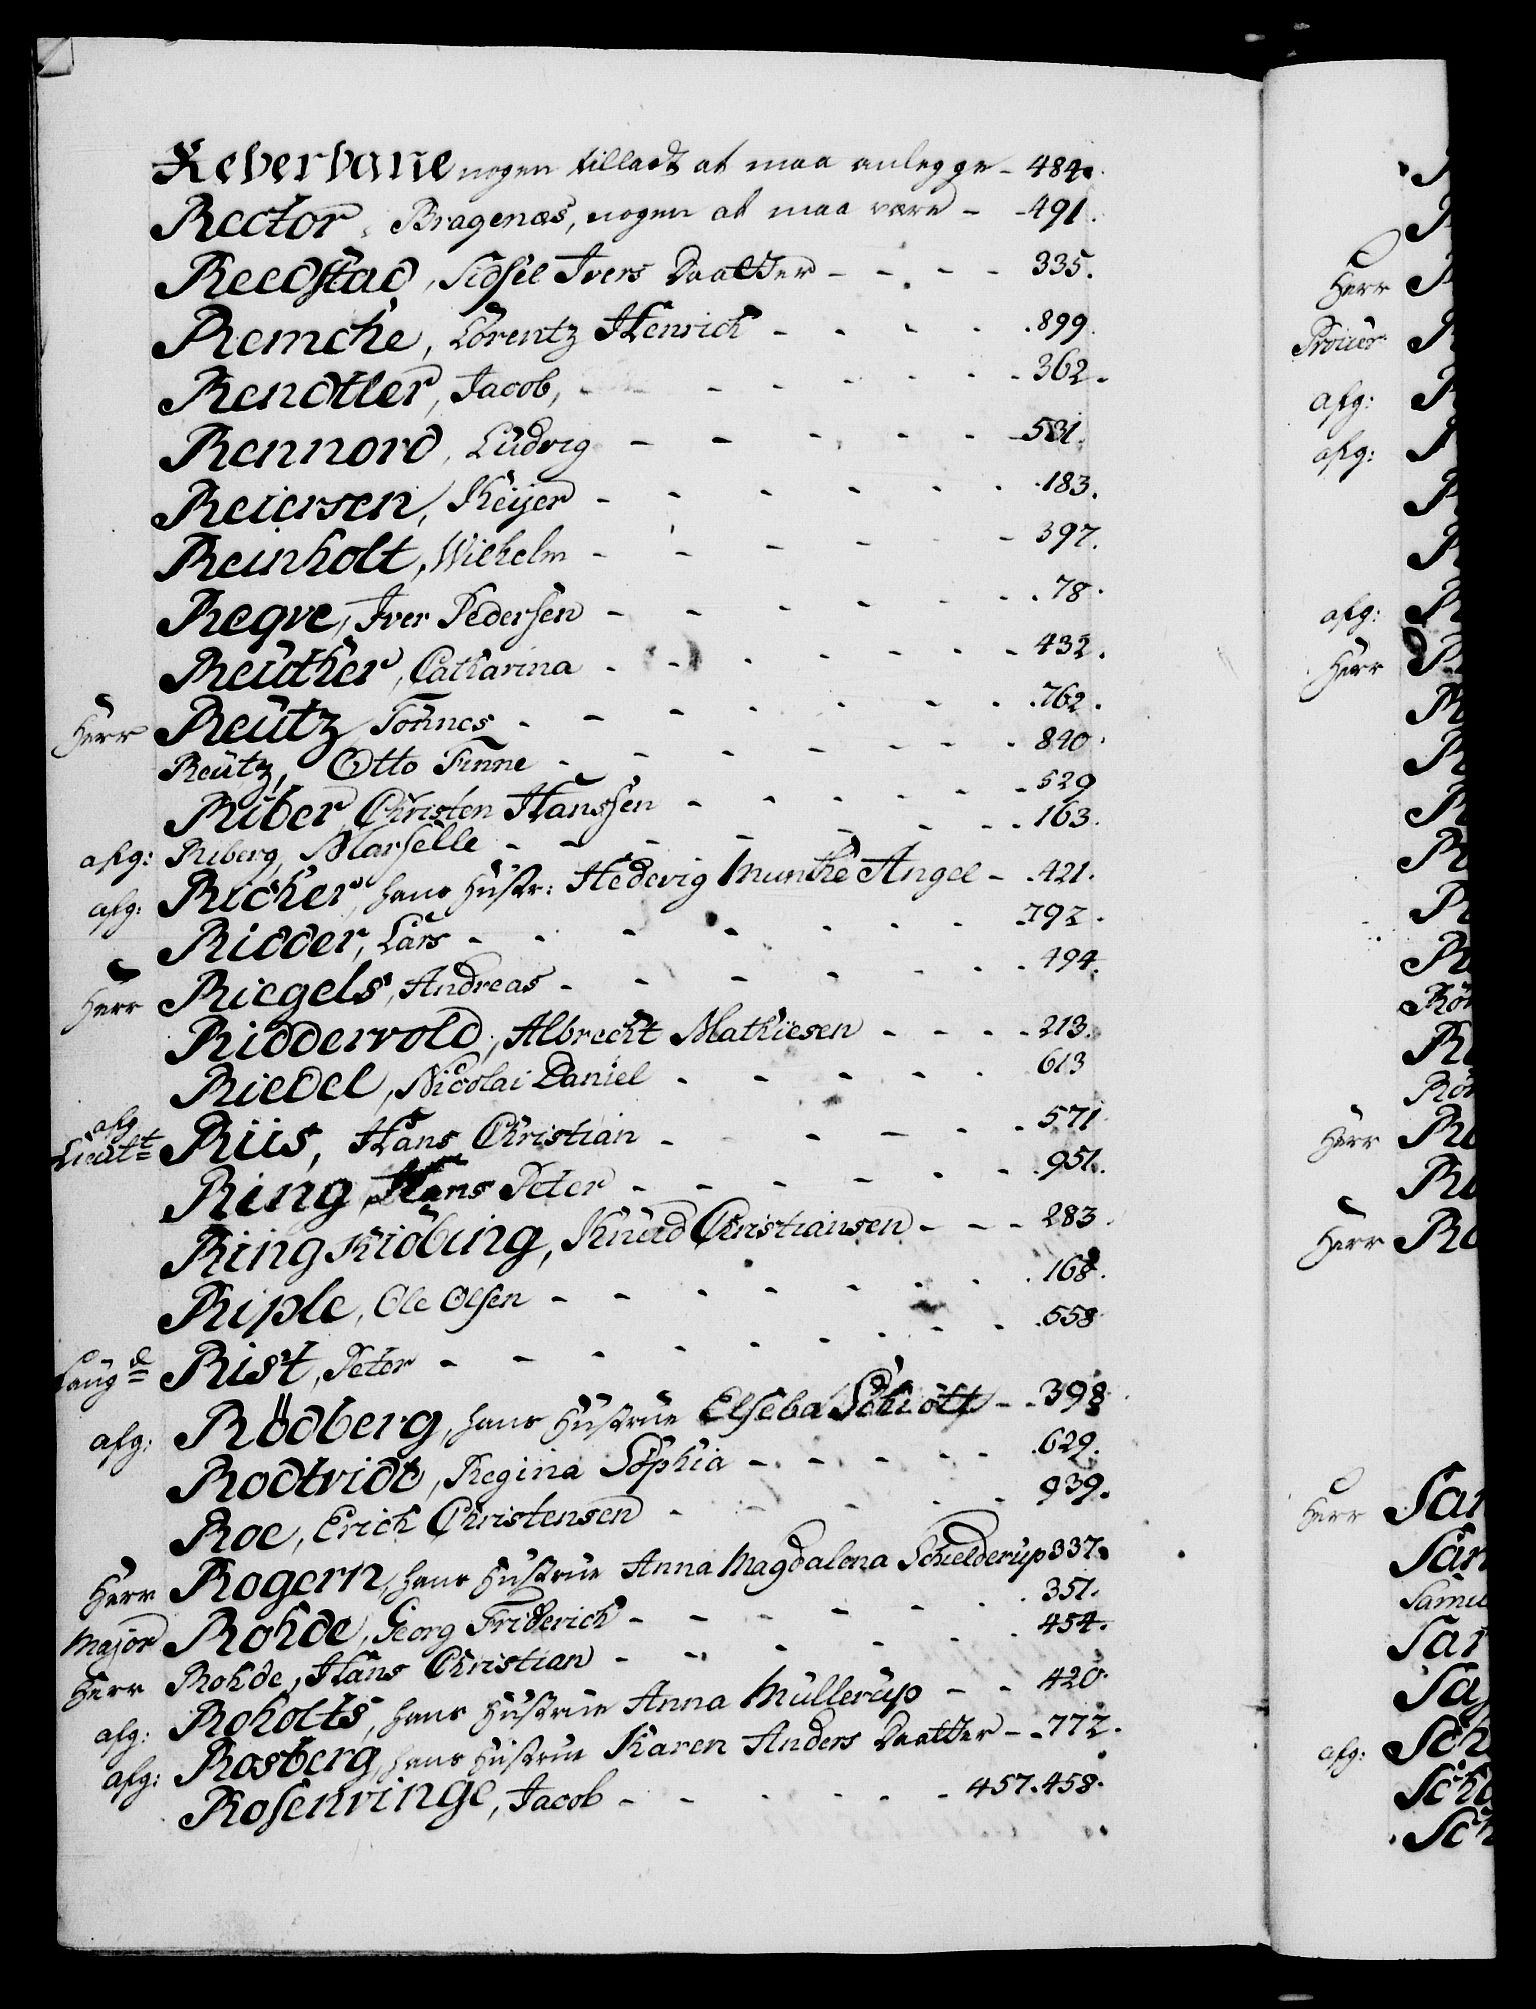 Reberbane nogen tilladt at maa anlegge - 484.
Rector, Bragenæs, nogen at maa være - - 491.
Reedstad, Sidsel Ivers Daatter - - - - 335.
Remche, Lorentz Henrich - - - - 899.
Rendtler, Jacob, - - - - - - 362.
Rennord, Ludvig - - - - - - 531.
Reiersen, Reijer - - - - - - 183.
Reinholt, Wilhelm - - - - - - 397.
Reqve, Iver Pedersen - - - - - - 78.
Reuther, Catharina - - - - - - 432.
Herr Reutz Tönnes - - - - - - 762.
Reutz, Otto Finne - - - - - - 840.
Riber Christen Hanssen - - - - - 529
afg: Riberg, Marselle - - - - - - 163.
afg: Richer, hans Hustr: Hedevig Munthe Angel - 421.
Ridder, Lars - - - - - - 792.
Herr Riegels, Andreas - - - - - - 494.
Riddervold, Albrecht Mathiesen - - - - 213.
Riedel, Nicolai Daniel - - - - - 613
afg Lieutt Riis, Hans Christian - - - - - 571
Ring, Hans Peter - - - - - - 951.
Ringkiöbing, Knud Christiansen - - - 283.
Riple, Ole Olsen - - - - - - 168.
Laugd Rist, Peter - - - - - - - 558
afg: Rödberg, hans Hustrue Elseba Schiött - - 398
Rodtvidt, Regina Sophia - - - - - 629.
Roe, Erich Christensen - - - - - 939.
Herr Rogern, hans Hustrue Anna Magdalena Schielderup 337.
Major Rohde, Georg Friderich - - - - - 351.
Herr Rohde, Hans Christian - - - - - 454.
afg: Roholts, hans Hustrue Anna Müllerup - - 420.
afg: Rosberg, hans Hustrue Karen Anders Daatter - - 772.
Rosenvinge, Jacob - - - - - - 457. 458.
Herr
afg:
afg:
afg:
Herr
Herr
Herr
Herr Sar
Sar
Samu
Sar
afg: Sch
Sch
Sch